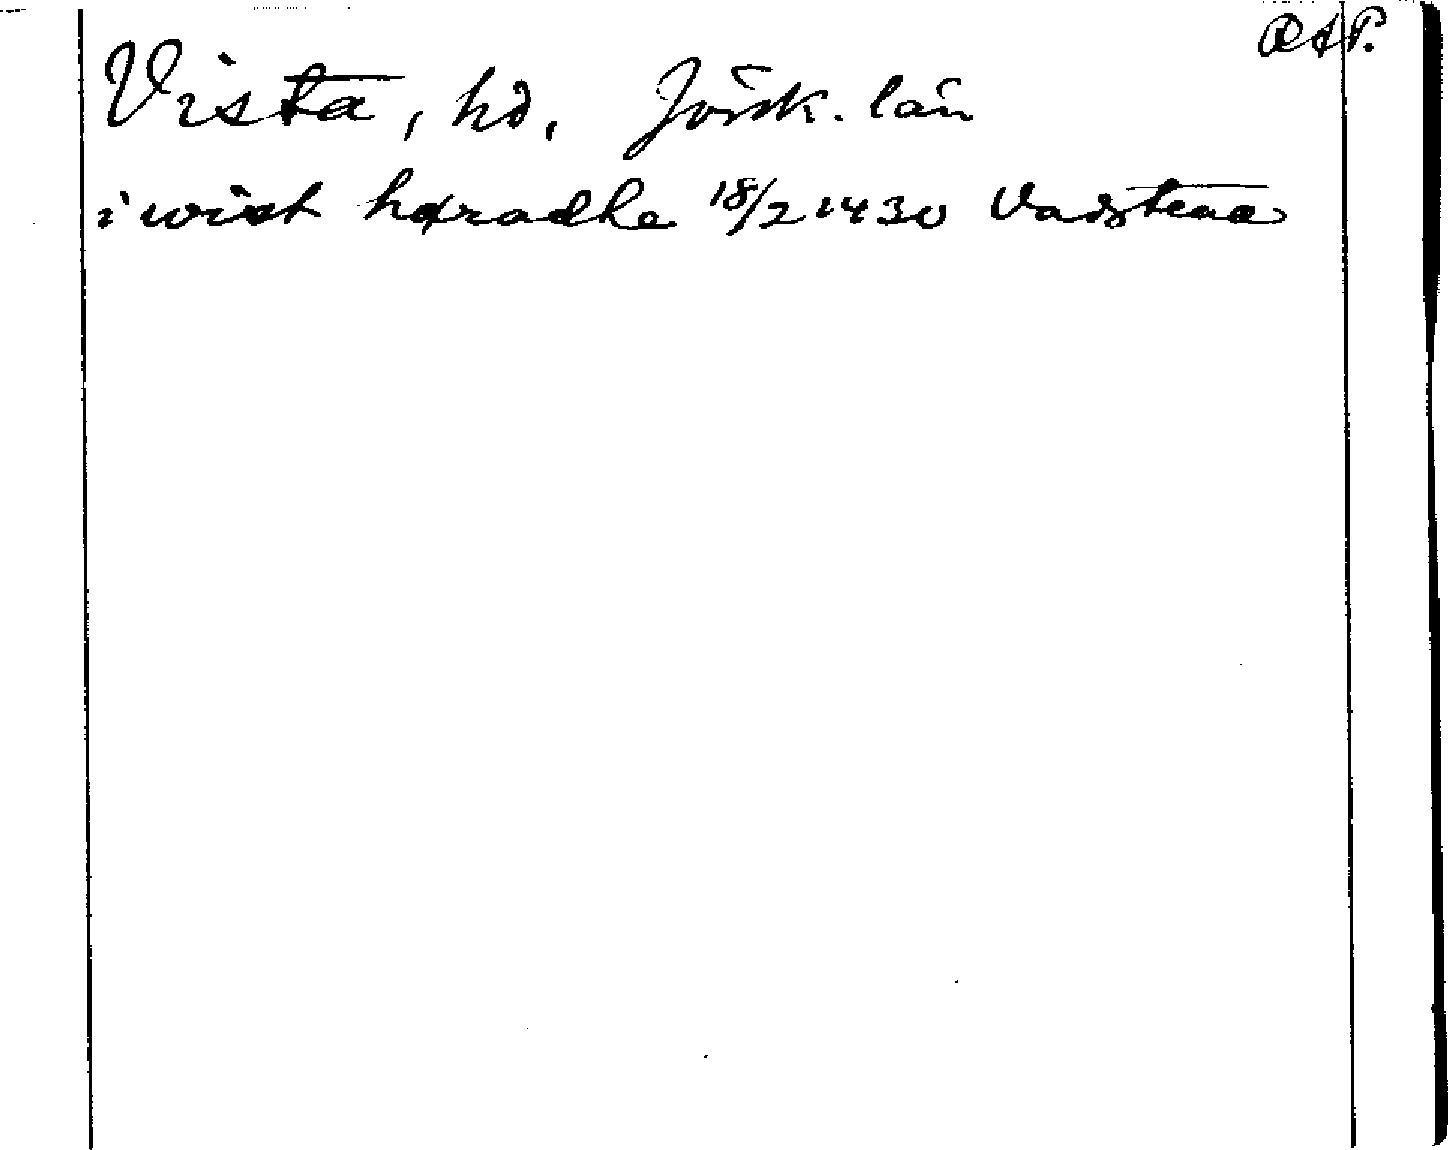 RAP.
Vista, hd, Jönk. län
i wist hæradhe 18/2 1430 Vadstena